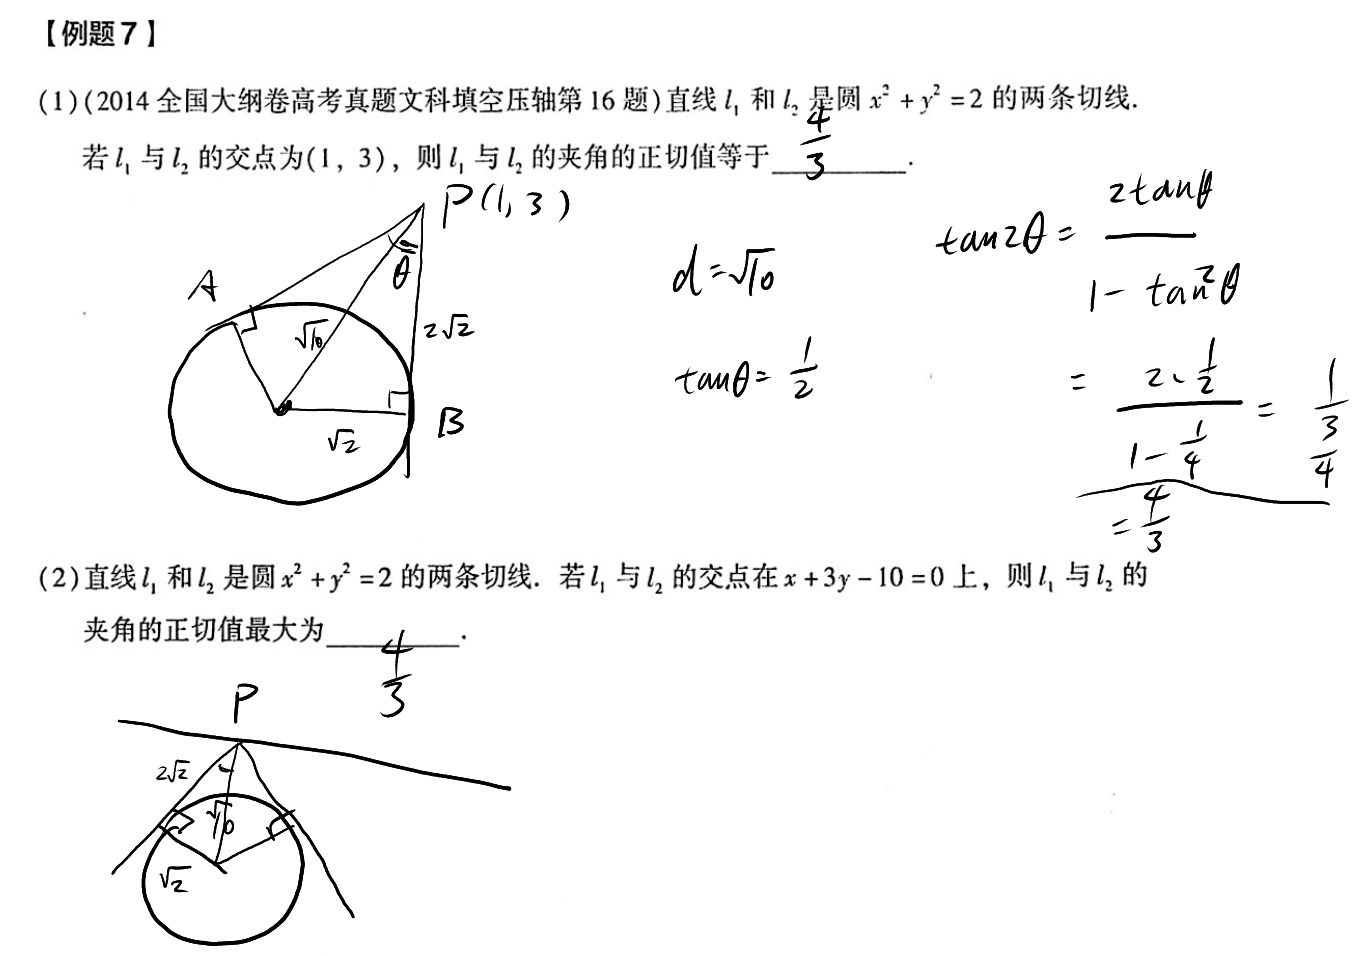 【例题7】
(1)(2014全国大纲卷高考真题文科填空压轴第16题)直线l₁和l₂是圆x²+y²=2的两条切线.
若l₁与l₂的交点为(1,3),则l₁与l₂的夹角的正切值等于 4/3 .
P(1,3)
θ
A
√10
2√2
√2
B
d=√10
tanθ=1/2
tan2θ=2tanθ/(1-tan²θ)
=(2·1/2)/(1-1/4)=1/(3/4)
=4/3
(2)直线l₁和l₂是圆x²+y²=2的两条切线.若l₁与l₂的交点在x+3y-10=0上,则l₁与l₂的
夹角的正切值最大为 4/3 .
P
2√2
√10
√2